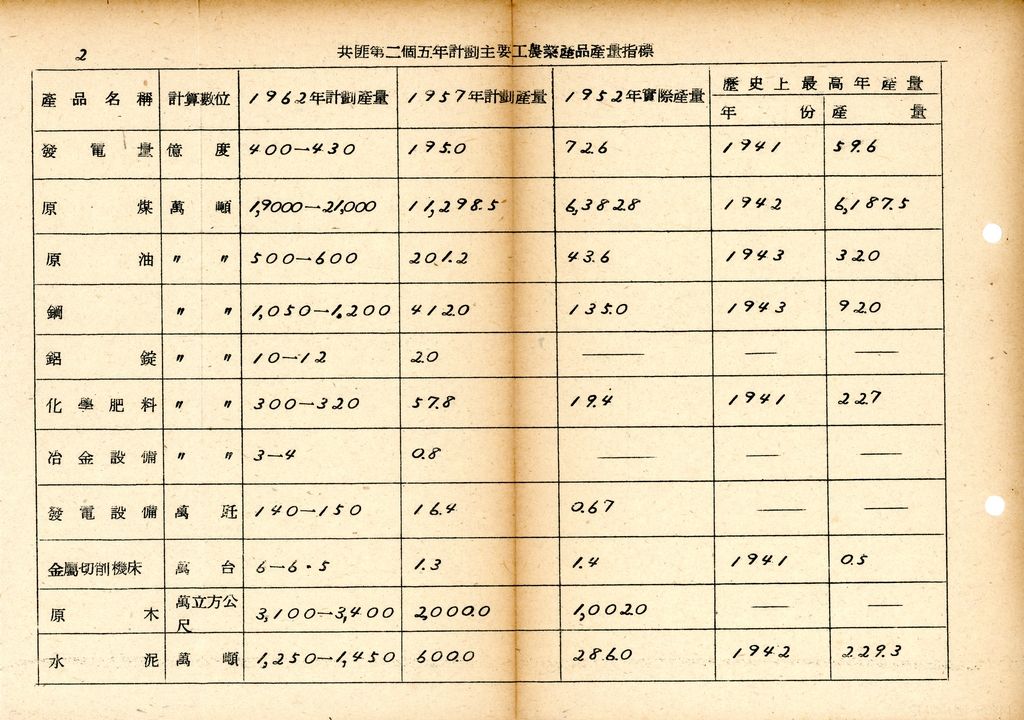 2
共匪第二個五年計劃主要工農業產品產量指標
產品名稱 計算數位 1962年計劃產量 1957年計劃產量 1952年實際產量 歷史上最高年產量
年份 產量
發電量 億度 400—430 195.0 72.6 1941 59.6
原煤 萬噸 1,9000—21,000 11,298.5 6,382.8 1942 6,187.5
原油 〃 〃 500—600 201.2 43.6 1943 32.0
鋼 〃 〃 1,050—1,200 412.0 135.0 1943 92.0
鋁錠 〃 〃 10—12 2.0 — — —
化學肥料 〃 〃 300—320 57.8 19.4 1941 22.7
冶金設備 〃 〃 3—4 0.8 — — —
發電設備 萬瓩 140—150 16.4 0.67 — —
金屬切削機床 萬台 6—6.5 1.3 1.4 1941 0.5
原木 萬立方公尺 3,100—3,400 2,000.0 1,002.0 — —
水泥 萬噸 1,250—1,450 600.0 286.0 1942 229.3